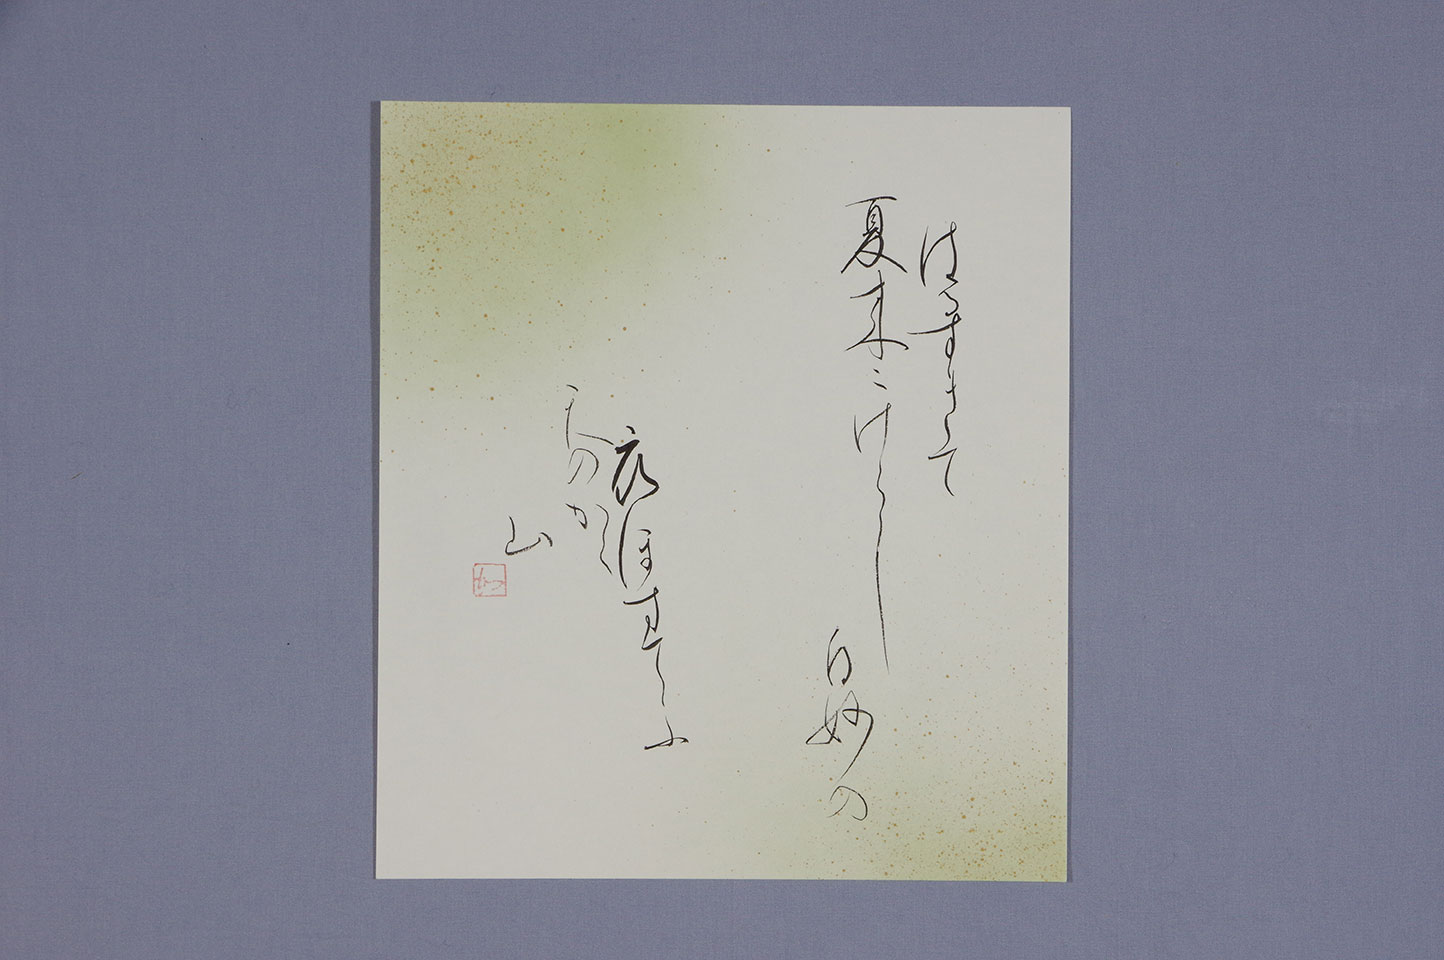 はるすきて
夏来にけらし
白妙の
衣ほすてふ
天のかく
山